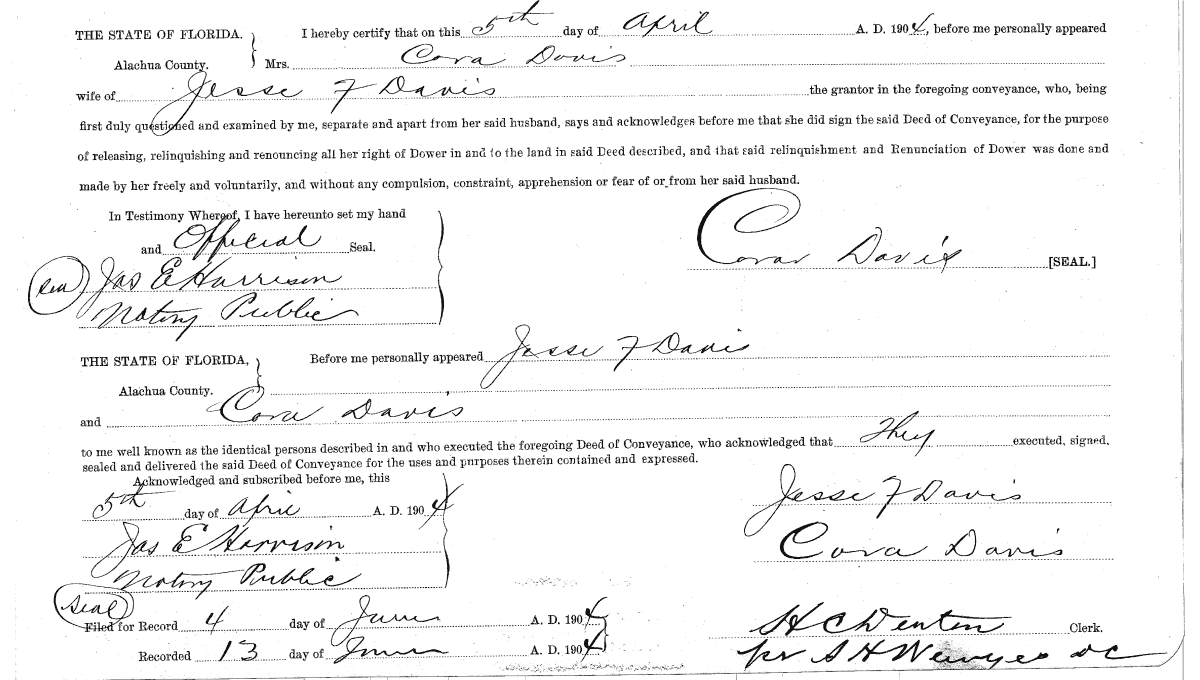 THE STATE OF FLORIDA. } I hereby certify that on this 5th day of April A. D. 1904, before me personally appeared
Alachua County. Mrs. Cora Davis
wife of Jesse F Davis the grantor in the foregoing conveyance, who, being
first duly questioned and examined by me, separate and apart from her said husband, says and acknowledges before me that she did sign the said Deed of Conveyance, for the purpose
of releasing, relinquishing and renouncing all her right of Dower in and to the land in said Deed described, and that said relinquishment and Renunciation of Dower was done and
made by her freely and voluntarily, and without any compulsion, constraint, apprehension or fear of or from her said husband.
In Testimony Whereof, I have hereunto set my hand
and Official Seal.
Cora Davis [SEAL.]
Seal Jas E Harrison
Notary Public
THE STATE OF FLORIDA, } Before me personally appeared Jesse F Davis
Alachua County.
and Cora Davis
to me well known as the identical persons described in and who executed the foregoing Deed of Conveyance, who acknowledged that they executed, signed,
sealed and delivered the said Deed of Conveyance for the uses and purposes therein contained and expressed.
Acknowledged and subscribed before me, this
5th day of April A. D. 1904
Jesse F Davis
Jas E Harrison
Cora Davis
Notary Public
Seal
Filed for Record 4 day of June A. D. 1904
H C Denton Clerk.
Recorded 13 day of June A. D. 1904
per S H DC